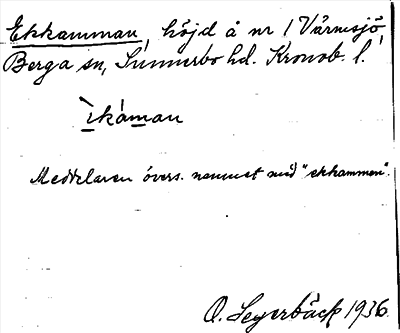 Ekkamman, höjd å nr 1 Värmsjö,
Berga sn, Sunnerbo hd. Kronob. l.
ìkáman
Meddelaren övers. namnet med "ekkammen".
O. Segerbäck 1936.